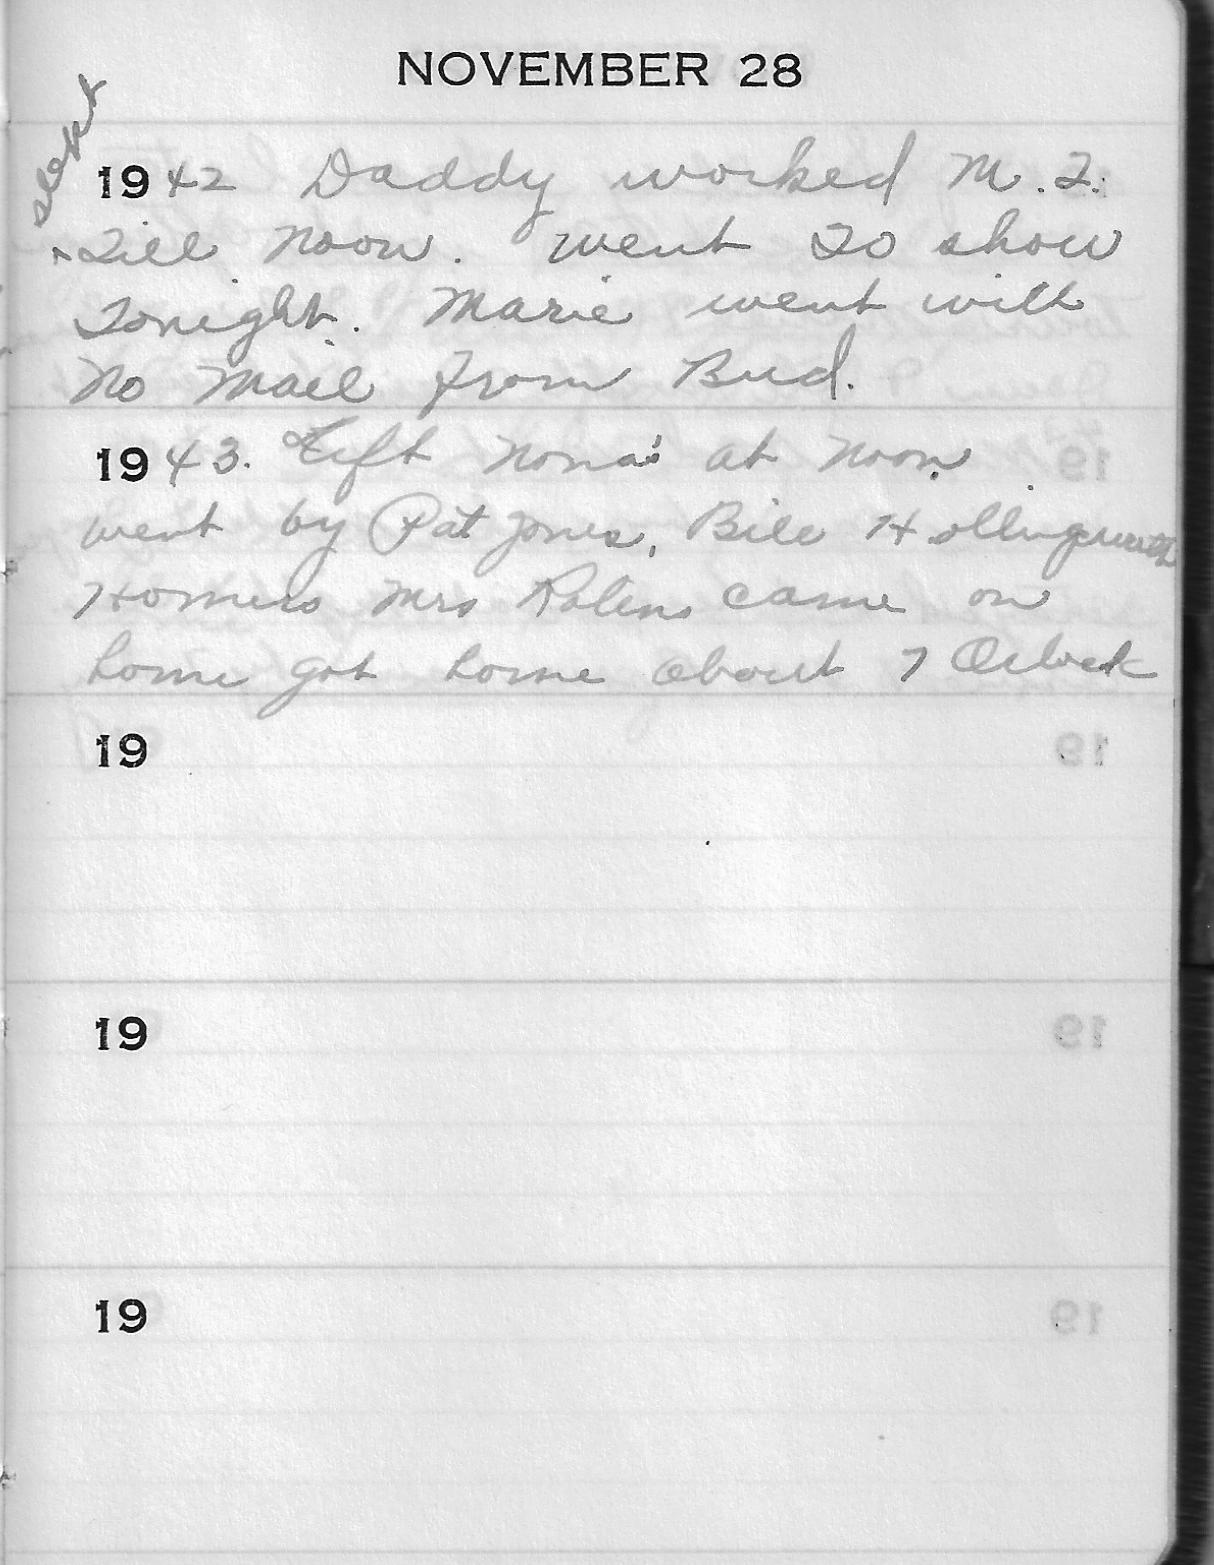 NOVEMBER 28
slept
1942 Daddy worked M.T.
till noon. went to show
tonight. Marie went with
No mail from Bud.
1943. Left Nona's at noon
went by Pat Jones, Bill Hollingsworth
Homers Mrs came on
home got home about 7 Oclock
19
19
19